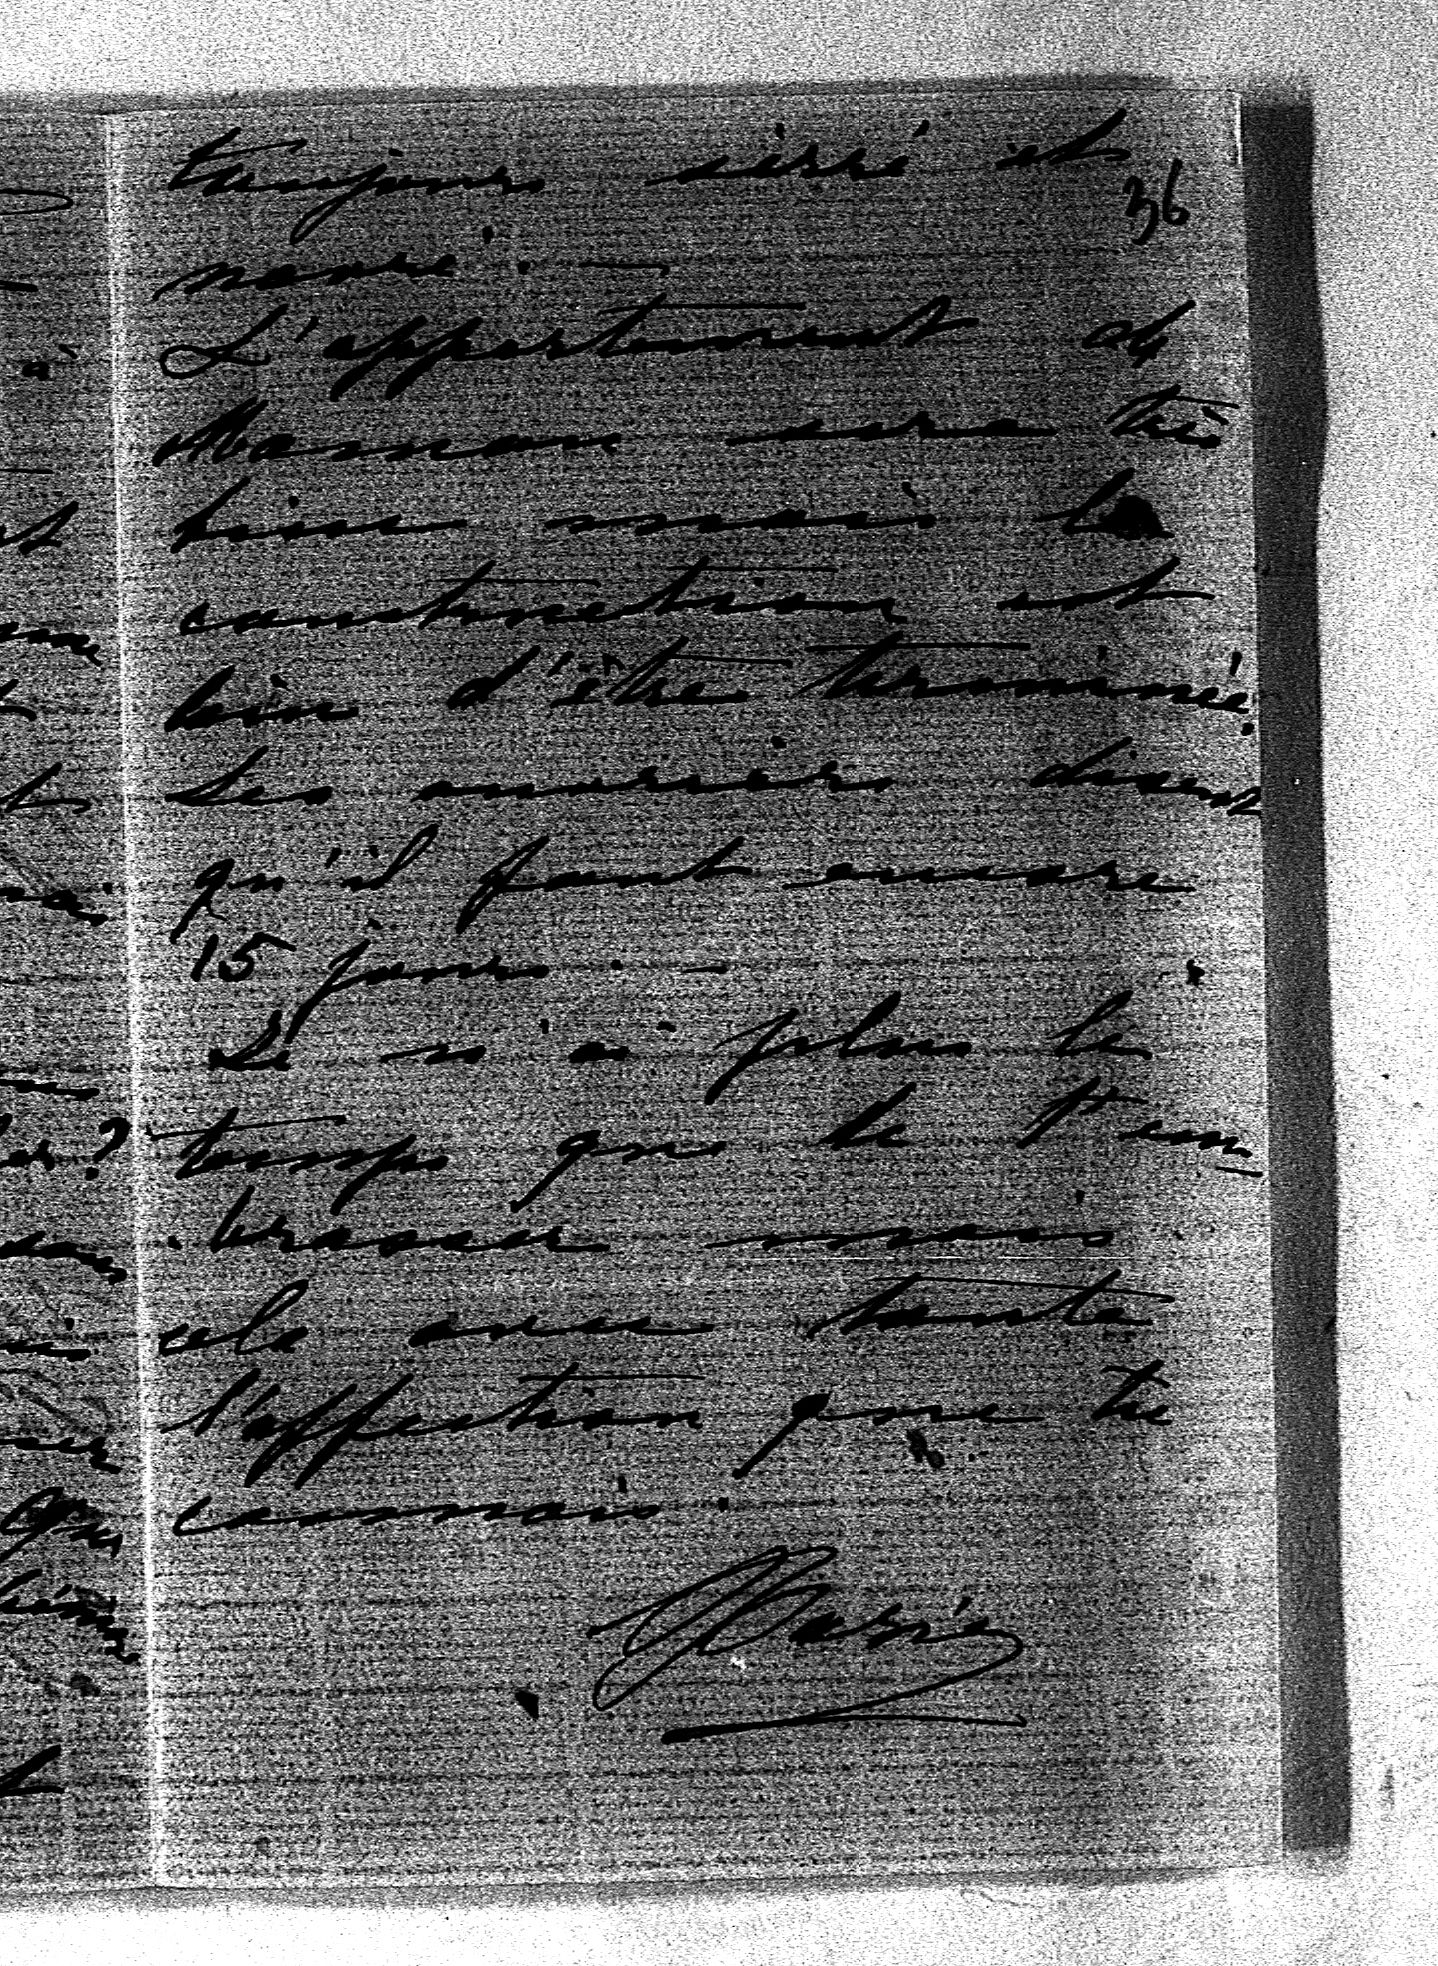 toujours serré et
36
navré. —
L'appartement de
Maman sera très
bien mais la
construction est
loin d'être terminée.
Les ouvriers disent
qu'il faut encore
15 jours. —
Je n'ai plus le
temps que de t'em-
brasser mais
cela avec toute
l'affection que tu
connais.
à
?